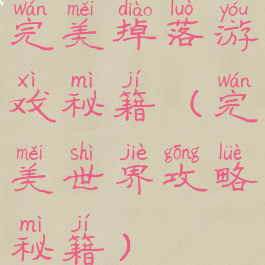 wán měi diào luò yóu
完美掉落游
xì mì jí wán
戏秘籍(完
měi shì jiè gōng lüè
美世界攻略
mì jí
秘籍)